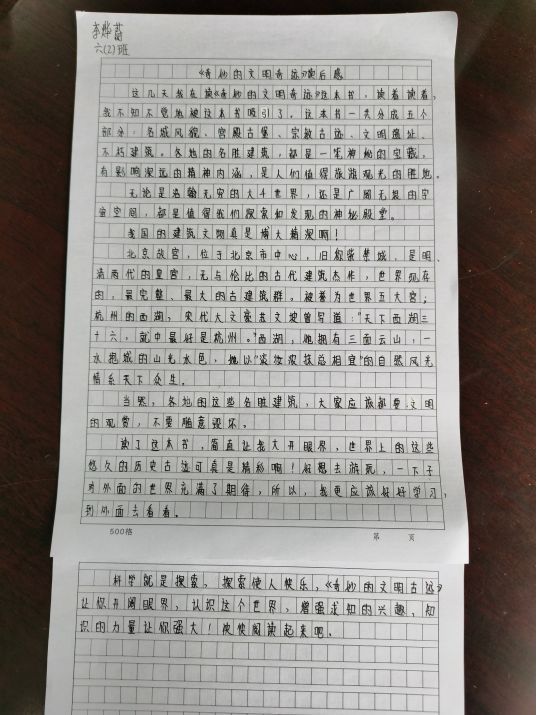 李烨蕾
六(2)班
《奇妙的文明奇迹》读后感
这几天我在读《奇妙的文明奇迹》这本书,读着读着,
我不知不觉地被这本书吸引了。这本书一共分成五个
部分:名城风貌、宫殿古堡、宗教古迹、文明遗址、
不朽建筑。各地的名胜建筑,都是一笔神秘的宝藏,
有影响深远的精神内涵,是人们值得旅游观光的胜地。
无论是浩瀚无穷的大千世界,还是广阔无垠的宇
宙空间,都是值得我们探索和发现的神秘殿堂。
我国的建筑文物真是博大精深啊!
北京故宫,位于北京市中心,旧称紫禁城,是明、
清两代的皇宫,无与伦比的古代建筑杰作,世界现存
的,最完整、最大的古建筑群。被誉为世界五大宫;
杭州的西湖,宋代大文豪苏文坡曾写道:“天下西湖三
十六,就中最好是杭州。”西湖,她拥有三面云山,一
水抱城的山光水色,她以“淡妆浓抹总相宜”的自然风光
情系天下众生。
当然,各地的这些名胜建筑,大家应该都要文明
的观赏,不要随意毁坏。
读了这本书,简直让我大开眼界,世界上的这些
悠久的历史古迹可真是精彩啊!好想去旅玩,一下子
对外面的世界充满了期待,所以,我更应该好好学习,
到外面去看看。
500格
第 页
科学就是探索,探索使人快乐,《奇妙的文明古迹》
让你开阔眼界,认识这个世界,增强求知的兴趣,知
识的力量让你强大!快快阅读起来吧。